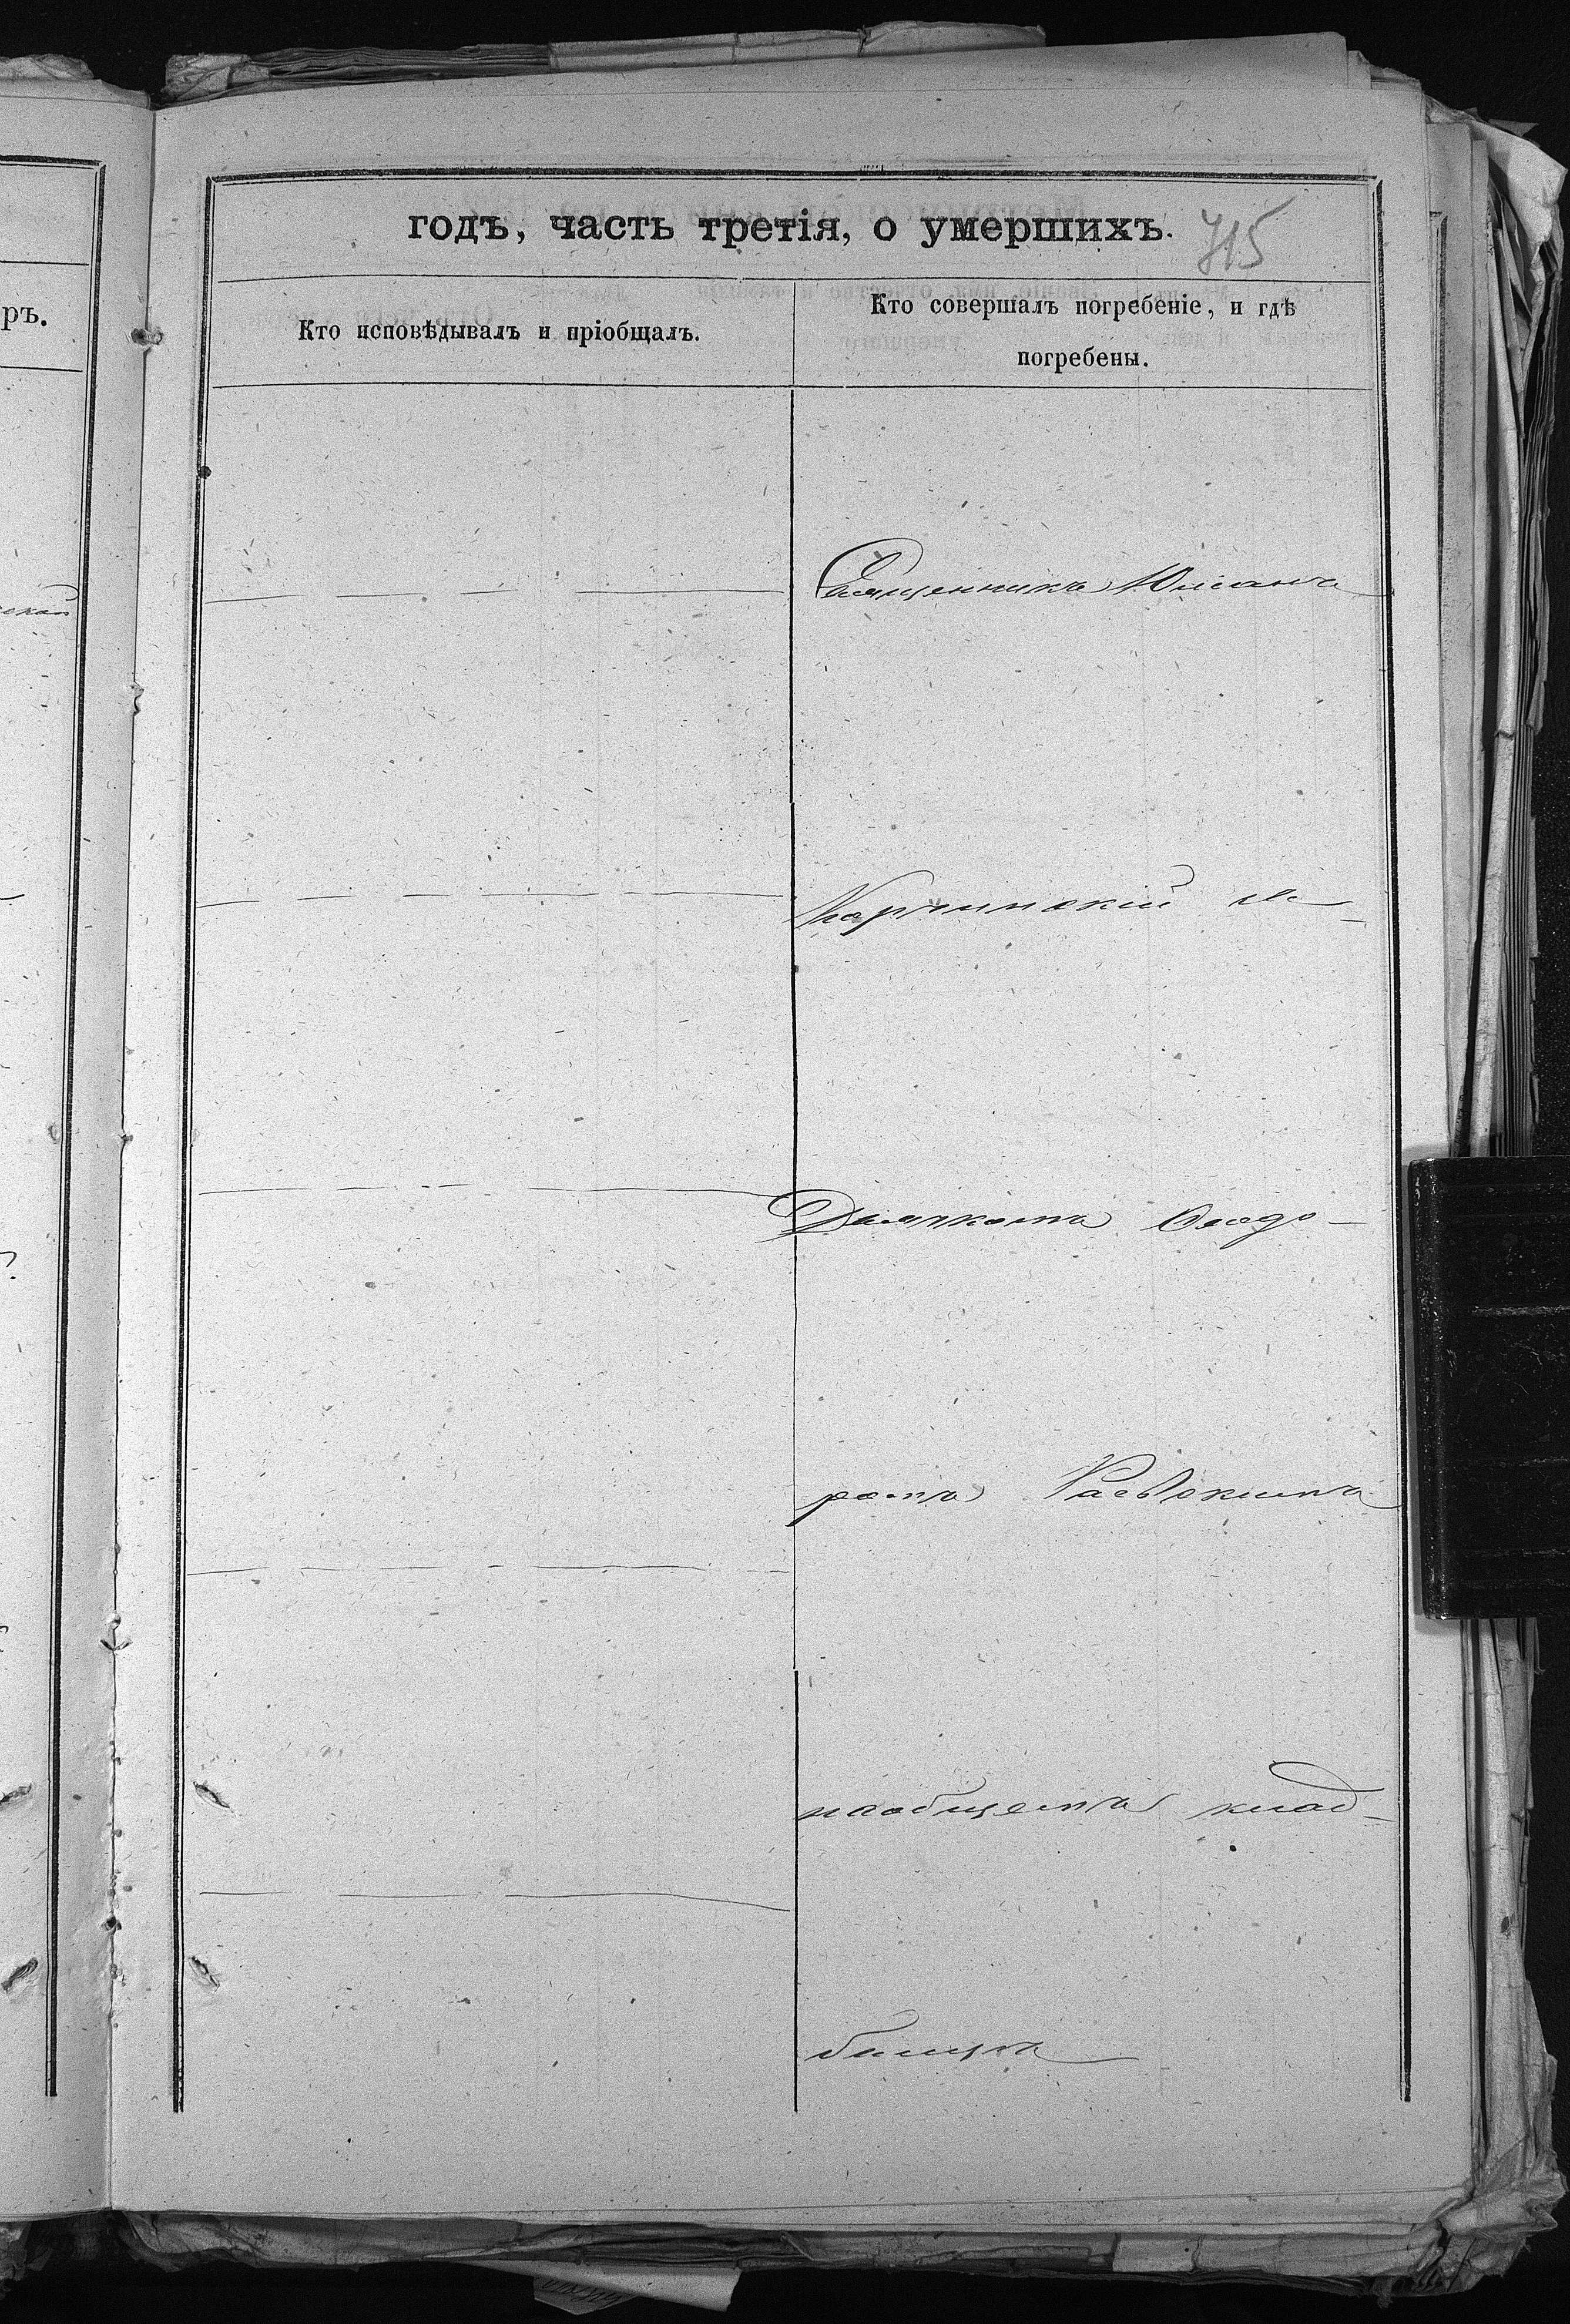 ръ.
годъ, часть третія, о умершихъ.
715
Кто исповѣдывалъ и пріобщалъ.
Кто совершалъ погребеніе, и гдѣ
погребены.
Священникъ Юліанъ
съ
Діаконъ Ѳеодо-
ромъ
на общемъ клад-
бищѣ